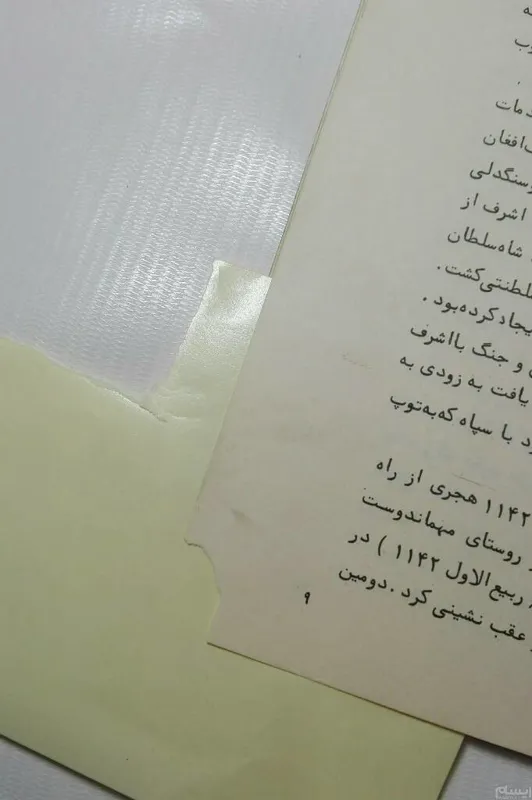 دمات
افغان
سنگدلی
اشرف از
شاه‌سلطان
سلطنتی‌کشت.
ایجادکرده‌بود.
و جنگ بااشرف
یافت به زودی به
د با سپاه که‌به‌توپ
۱۱۴۲ هجری از راه
روستای مهماندوست
ربیع‌الاول ۱۱۴۲ ) در
عقب نشینی کرد . دومین
۹
ایسام